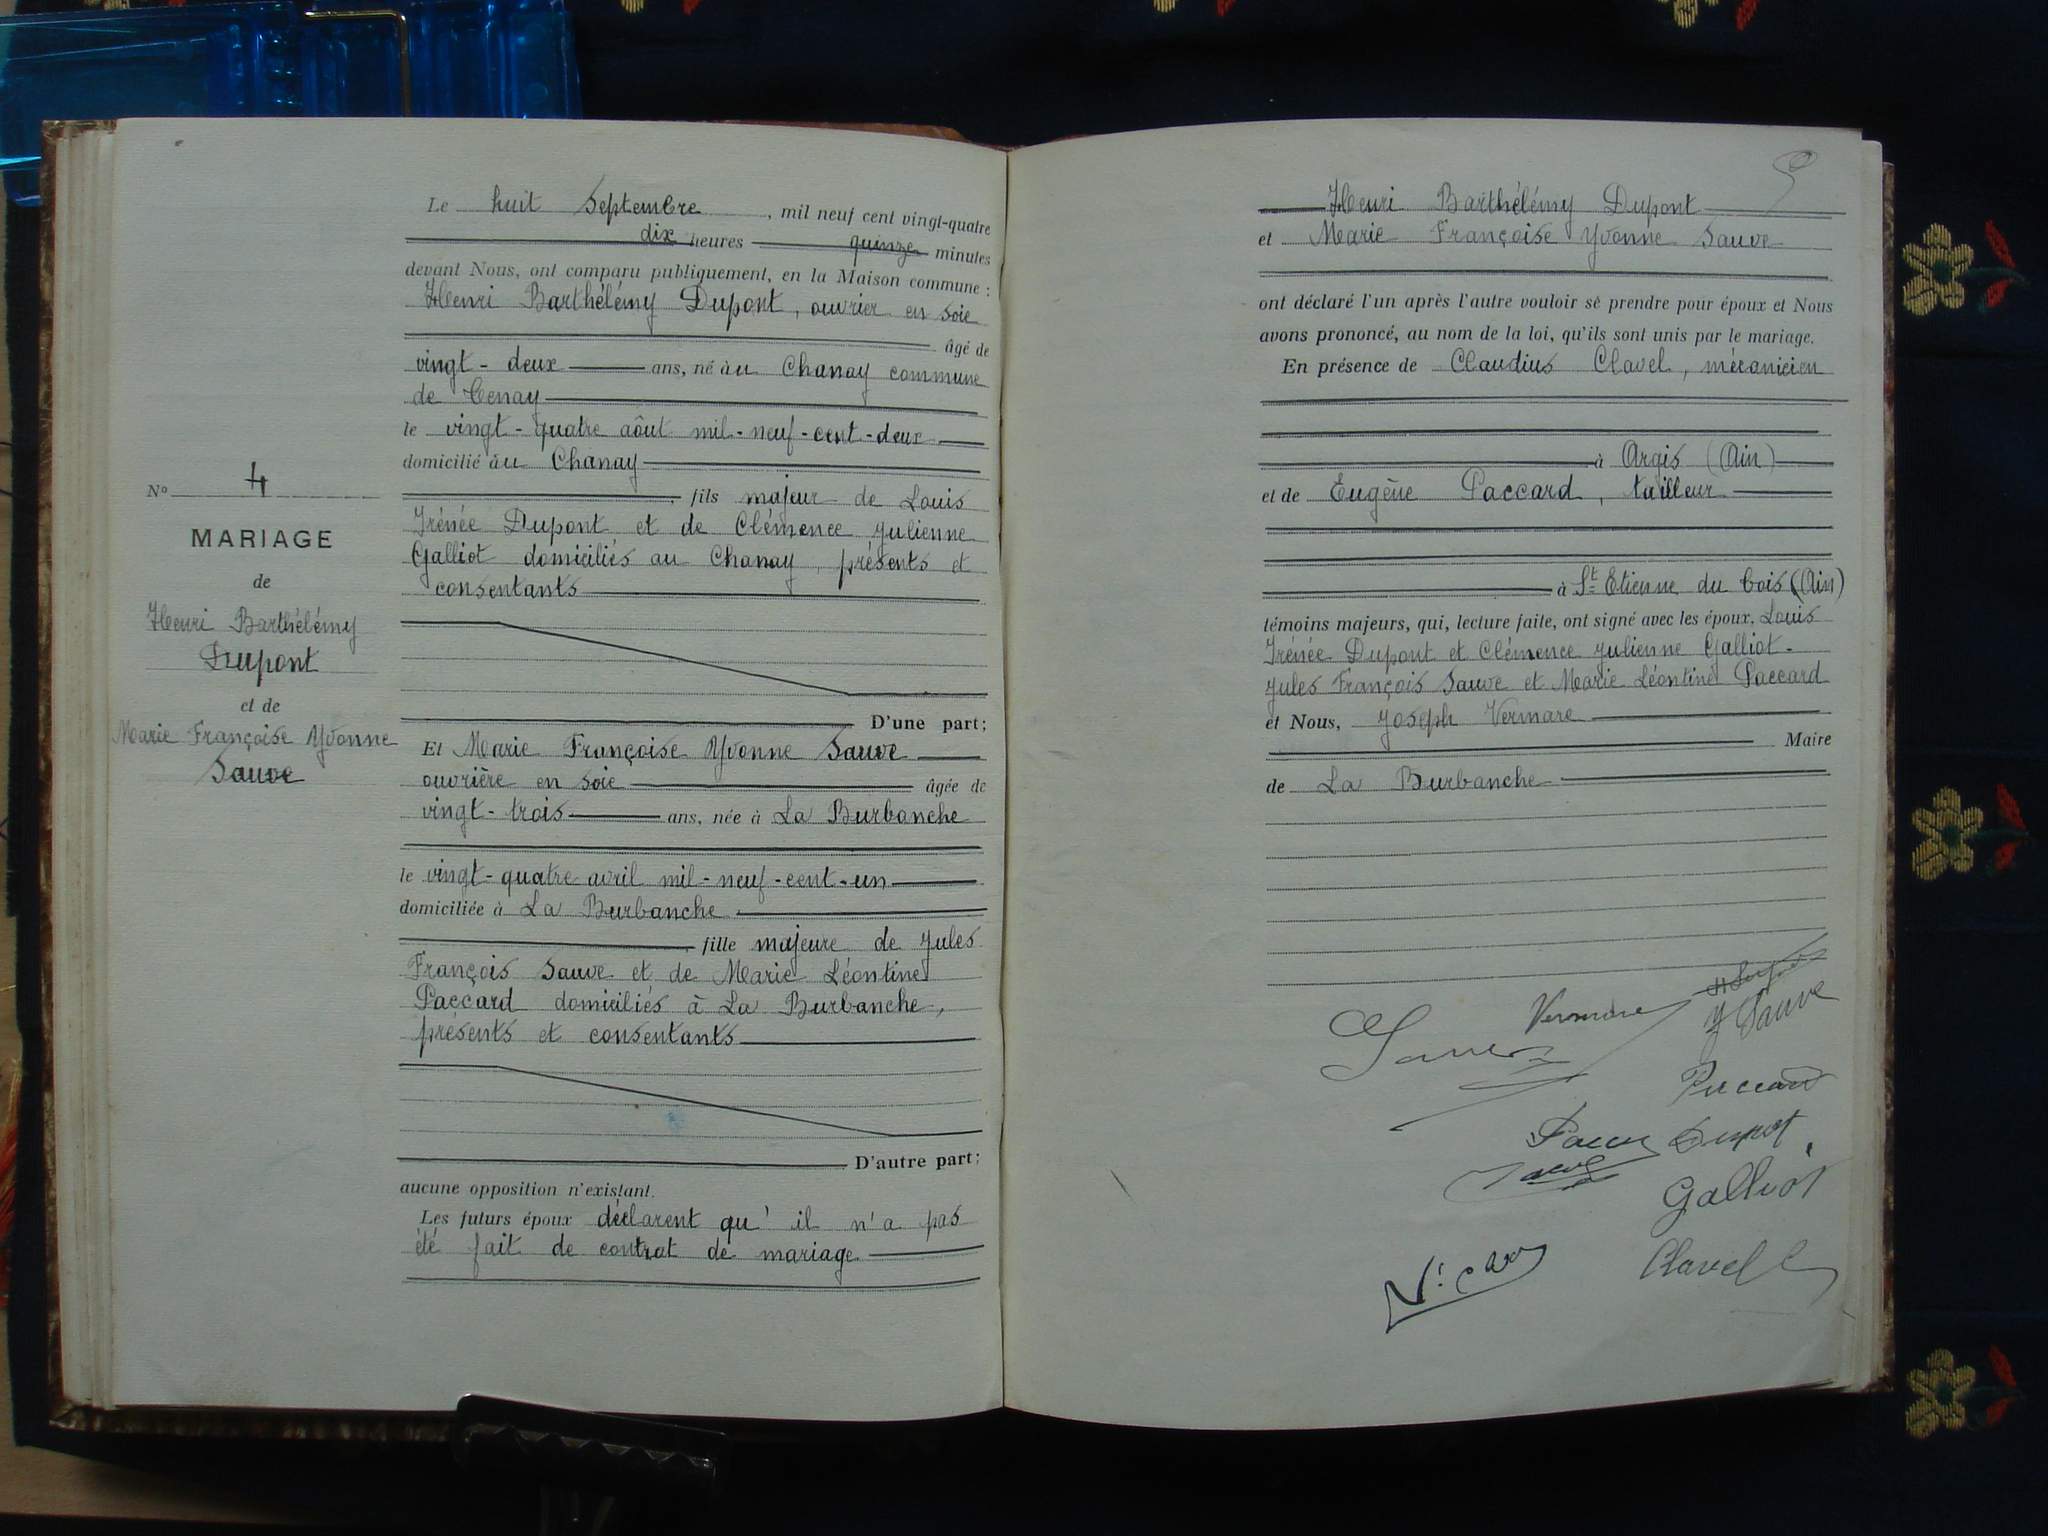 Le huit Septembre, mil neuf cent vingt-quatre
dix heures quinze minutes
devant Nous, ont comparu publiquement, en la Maison commune :
Henri Barthélémy Dupont, ouvrier en soie
âgé de
vingt-deux ans, né à u Chanay commune
de Tenay
le vingt-quatre août mil-neuf-cent-deux
domicilié à u Chanay
, fils majeur de Louis
Irénée Dupont et de Clémence Julienne
Galliot domiciliés au Chanay, présents et
consentants
D'une part;
Et Marie Françoise Yvonne Sauve
ouvrière en soie âgée de
vingt-trois ans, née à La Burbanche
le vingt-quatre avril mil-neuf-cent-un
domiciliée à La Burbanche
, fille majeure de Jules
François Sauve et de Marie Léontine
Paccard domiciliés à La Burbanche,
présents et consentants
D'autre part;
aucune opposition n'existant.
Les futurs époux déclarent qu'il n'a pas
été fait de contrat de mariage
No 4
MARIAGE
de
Henri Barthélémy
Dupont
et de
Marie Françoise Yvonne
Sauve
Henri Barthélémy Dupont
et Marie Françoise Yvonne Sauve
ont déclaré l'un après l'autre vouloir se prendre pour époux et Nous
avons prononcé, au nom de la loi, qu'ils sont unis par le mariage.
En présence de Claudius Clavel, mécanicien
à Argis (Ain)
et de Eugène Paccard, tailleur
à St Etienne du bois (Ain)
témoins majeurs, qui, lecture faite, ont signé avec les époux, Louis
Irénée Dupont et Clémence Julienne Galliot-
Jules François Sauve et Marie Léontine Paccard
et Nous, Joseph Vermare
Maire
de La Burbanche
Vermare
Y Sauve
Paccard
Dupont
Galliot
Clavel